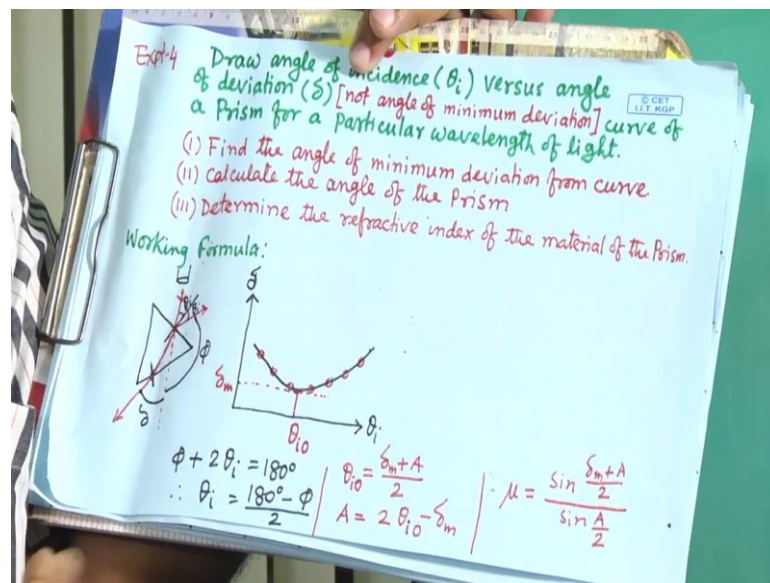 Expt-4 Draw angle of incidence (θi) versus angle
of deviation (δ) [not angle of minimum deviation] curve of
a Prism for a particular wavelength of light.
© CET
I.I.T. KGP
(i) Find the angle of minimum deviation from curve
(ii) Calculate the angle of the Prism
(iii) Determine the refractive index of the material of the Prism.
Working formula:
δ
θi
φ
δ
δm
θi0
θi
φ + 2θi = 180°
∴ θi = (180° - φ)/2
θi0 = (δm + A)/2
A = 2θi0 - δm
μ = sin (δm + A)/2 / sin A/2